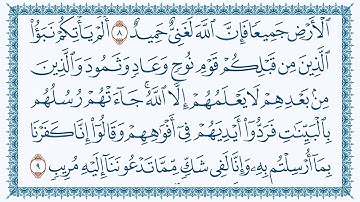 ٱلۡأَرۡضِ جَمِيعٗا فَإِنَّ ٱللَّهَ لَغَنِيٌّ حَمِيدٌ ٨ أَلَمۡ يَأۡتِكُمۡ نَبَؤُاْ
ٱلَّذِينَ مِن قَبۡلِكُمۡ قَوۡمِ نُوحٖ وَعَادٖ وَثَمُودَ وَٱلَّذِينَ
مِنۢ بَعۡدِهِمۡ لَا يَعۡلَمُهُمۡ إِلَّا ٱللَّهُۚ جَآءَتۡهُمۡ رُسُلُهُم
بِٱلۡبَيِّنَٰتِ فَرَدُّوٓاْ أَيۡدِيَهُمۡ فِيٓ أَفۡوَٰهِهِمۡ وَقَالُوٓاْ إِنَّا كَفَرۡنَا
بِمَآ أُرۡسِلۡتُم بِهِۦ وَإِنَّا لَفِي شَكّٖ مِّمَّا تَدۡعُونَنَآ إِلَيۡهِ مُرِيبٖ ٩